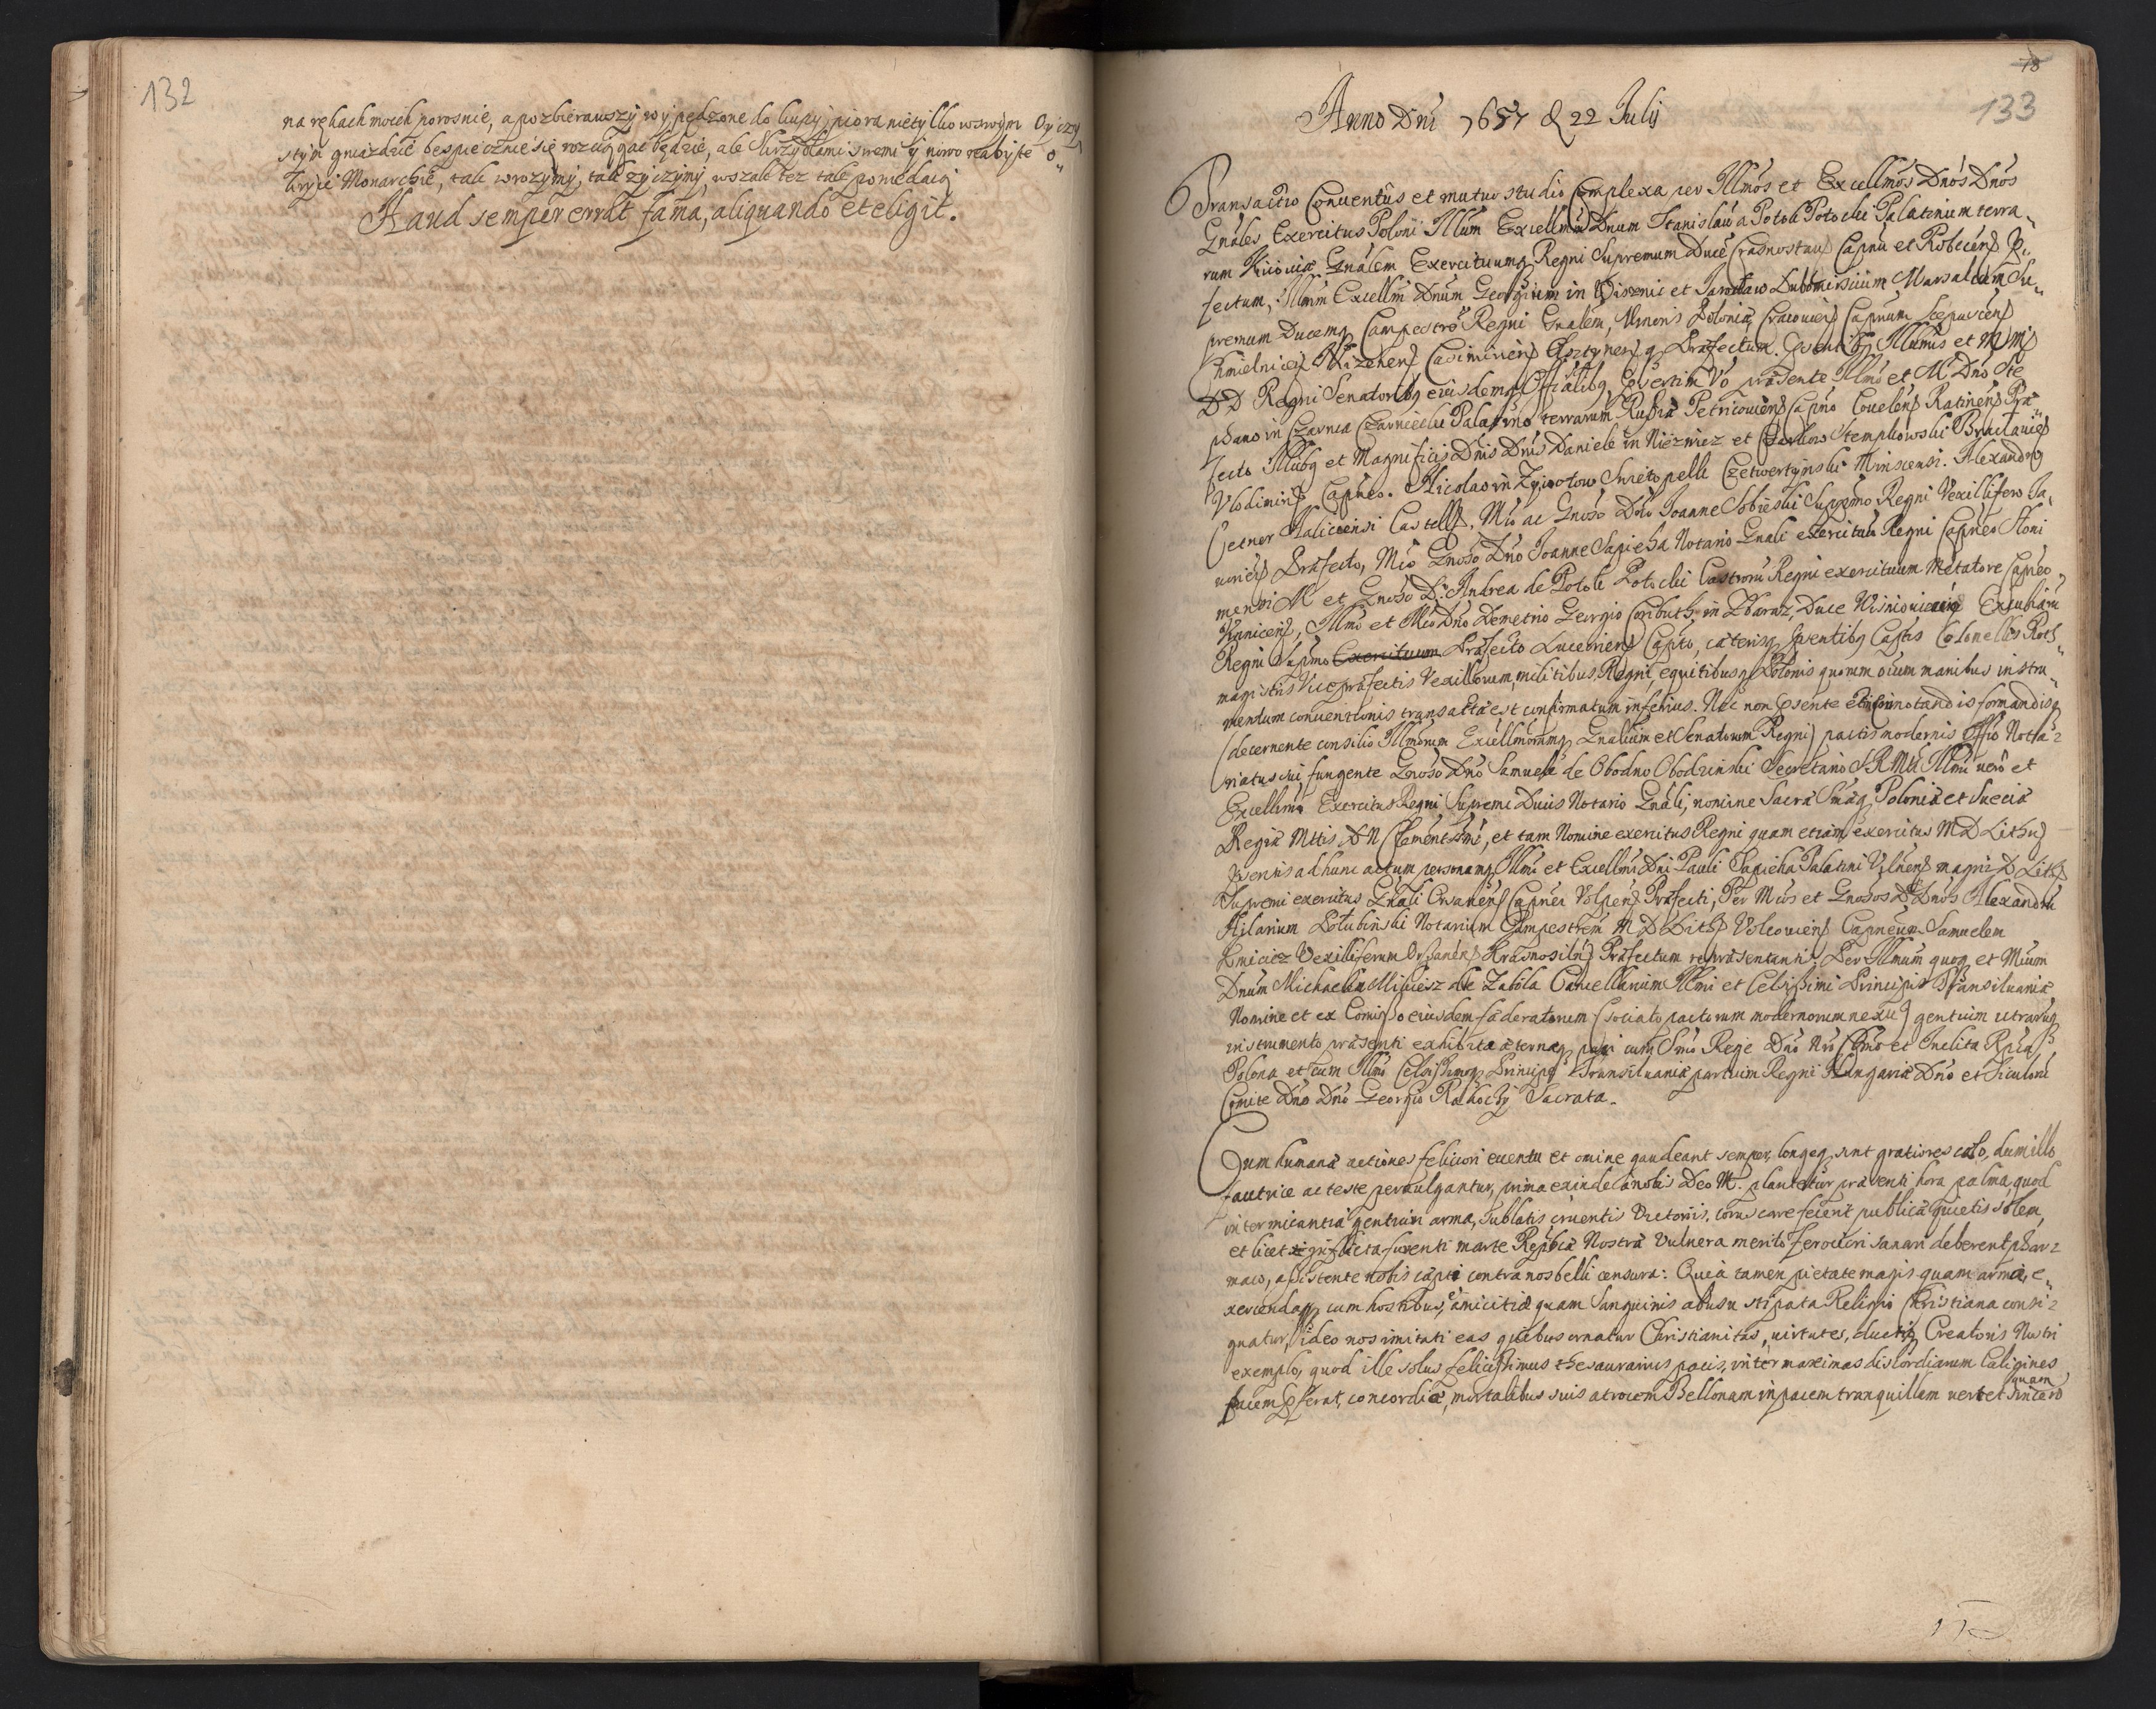 132
na rękach moich porosnie, a pozbierawszy wypędzone do kupy piora nietylko wswoim Oyczy
stym gniazdzie bespiecznie się rozciągać będzie, ale skrzydłami swemi y nowo nabyte o„
kryie Monarchie, tak wrozymy, tak zyczymy, wszak tez tak powiedaią
Haud semper errat fama, aliquando et eligit.
18
133
Anno Dni 1657 d 22 Julij
Transactio Conuentûs et mutuo studio Complexa per Illmos et Excellmos Dnos Dnos
Gnales Exercitus Poloni Illum Excellmu Dnum Stanislau a Potok Potocki Palatinum terra„
rum Kiiouiæ Gnalem Exercituumq Regni Supremum Ducē Crasnostau Capnu et Robecens P„
fectum, Illmm Excellm Dnum Georgium in Wisznic et Jarosław Lubomirscium Marsalcum Su„
premum Ducemq Campestrē Regni Gnalem, Minoris Poloniæ, Cracouiens Capnum Scepusiens
Chmielnicens Nizehens Casimiriens Olsztynensq Præfectum. Pñtibq Illumis et M M
DD Regni Senatoribq eiusdemq Officialibq, Psertim Vo præsente Illmo et M Dno Ste
phano in Czarnca Czarniecki Palatino terrarum Russiæ Petricouiens Capno Couelens Ratinens Præ„
fecto Illubq et Magnificis Dnis Dnis Daniele in Niezwiez et Czarkow Stempkowski Braclauies
Vlodimiris Capneo. Nicolao in Zyiwotow Swietopelk Czetwertynski Minscensi. Alexandro
Cetner Haliciensi Castells. Mio ac Gnoso Dno Joanne Sobieski Supremo Regni Vexillifero Ja„
uoriens Præfecto, Mio Gnoso Dno Joanne Sapieha Notario Gnali exercitus Regni Capneo Sloni
mensi M et Gnoso D. Andrea de Potok Potocki Castroru Regni exercituum Metatore Capneo
Vinnicens, Illmo et Mio Dno Demetrio Georgio Coributh in Zbaraz, Duce Wisniouiecio Excubiaru
Regni Supmo Exercituum Præfecto Luceoriens Capto, cæterisq Psentibq Castris Colonellis Roth„
magistris Viceprefectis Vexillorum, militibus Regni, equitibusq Polonis quorum oium manibus instru„
mentum conuentionis transactæ est confirmatum inferius. Nec non Psente connotandis formandisq
(decernente consilio Illmorum Excellmorumq Gnalium et Senatorum Regni) pactis modernis Offio Nota=
riatus sui fungente Gnoso Dno Samuele de Obodno Obodzinski Secretario S R Mti Illmi uero et
Excellmi Exercitus Regni Supremi Ducis Notario Gnali, nomine Sacræ Smæq Poloniæ et Sueciæ
Regiæ Mttis D N Clementissmi, et tam Nomine exercitus Regni quam etiam exercitus M D Lithu
Psentis ad hunc actum personamq Illmi et Excellmi Dni Pauli Sapieha Palatini Vilnens magni D Lith
Supremi exercitus Gnali Orsanens Capnei Volpens Præfecti, Per Mios et Gnosos DDnos Alexandru
Hilarium Połubinski Notarium Campestrem M D Lith Volcouiens Capneum Samuelem
Kmicicz Vexilliferum Orsanens Krasnosiln Præfectum repræsentanti. Per Illmum quoq et Mium
Dnum Michaelem Mikiesz de Zabola Cancellarium Illmi et Celsissimi Principis Transiluaniæ
Nomine et ex Comisso eiusdem fœderatorum (sociato pactorum modernorum nexu) gentium utrarusq
instrumento præsenti exhibita æternaq paci cum Smo Rege Dno Nro Clmo et Inclita Rpca
Polona et cum Illmo Celsissimoq Principe Transiluaniæ partium Regni Hungariæ Dno et Siculoru
Comite Dno Dno Georgio Rakoczy Sacrata.
Cum humanæ actiones feliciori euentu et omine gaudeant semper, longeq sint gratiores cœlo, dum illo
fautrice ac teste peruulgantur, prima exinde â nobis Deo M. plantetur præsenti hora palma, quod
inter micantia gentium arma, sublatis cruentis Victoriis, coruscare fecerit publicæ quietis solem,
et licet inflicta furenti marte Reipbcæ Nostræ Vulnera merito ferociori sanari deberent phar=
maco, assistente nobis capti contra nos belli censura: Quia tamen pietate magis quam armis, e„
xercendaq cum hostibus, amicitiæ quam Sanguinis abusu stipata Religio Christiana consi=
gnatur, ideo nos imitati eas quibus ornatur Christianitas, uirtutes, ductiq Creatoris Nostri
exemplo, quod ille solus felicissimus thesaurarius pacis, inter maximas discordiarum Caligines
facem Pferat, concordiæ, mortalibus suis atrocem Bellonam in pacem tranquillam uertet quam sincero